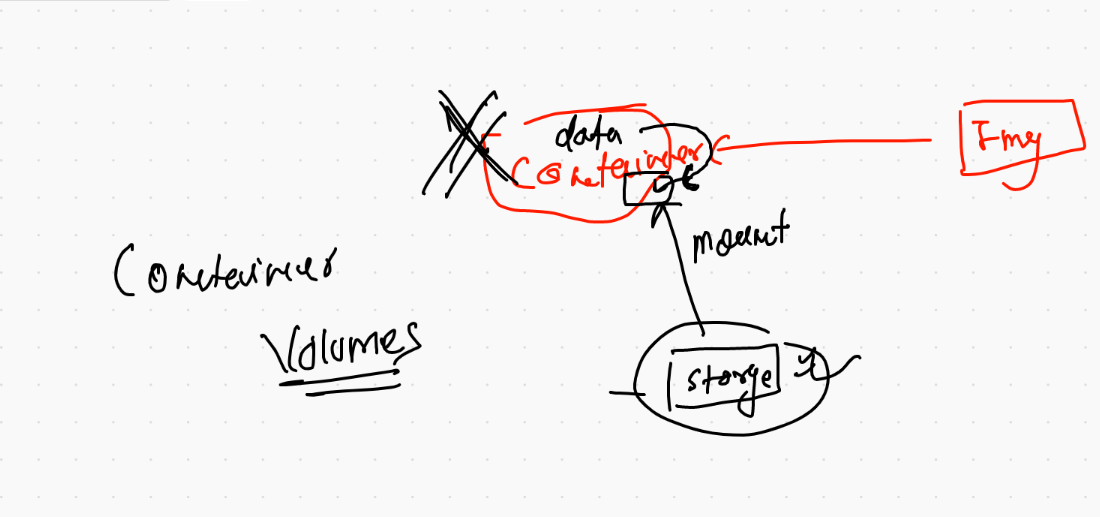 data
Container
Img
mount
Container
Volumes
storge